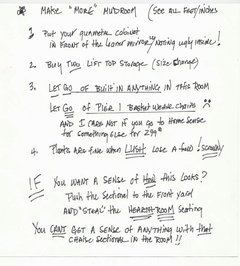 * MAKE "MORE" MUDROOM (SEE ALL FEET/INCHES
1 PUT YOUR GUNMETAL CABINET
IN FRONT OF THE MIRROR NOTHING UGLY INSIDE!
2. BUY TWO LIFT TOP STORAGE (SIZE CHANGE)
3. LET GO OF BUILT IN ANYTHING IN THIS ROOM
LET GO OF PIER 1 BASKET WEAVE CHAIRS !!
AND I CARE NOT IF YOU GO TO HOME SENSE
FOR SOMETHING ELSE FOR 299
4. PLANTS ARE FINE WHEN LUSH LOSE A FEW!
IF YOU WANT A SENSE OF HOW THIS LOOKS?
PUSH THE SECTIONAL TO THE FRONT YARD
AND "STEAL" THE HEARTH ROOM SEATING
YOU CAN'T GET A SENSE OF ANYTHING WITH THAT
CHAISE SECTIONAL IN THE ROOM!!